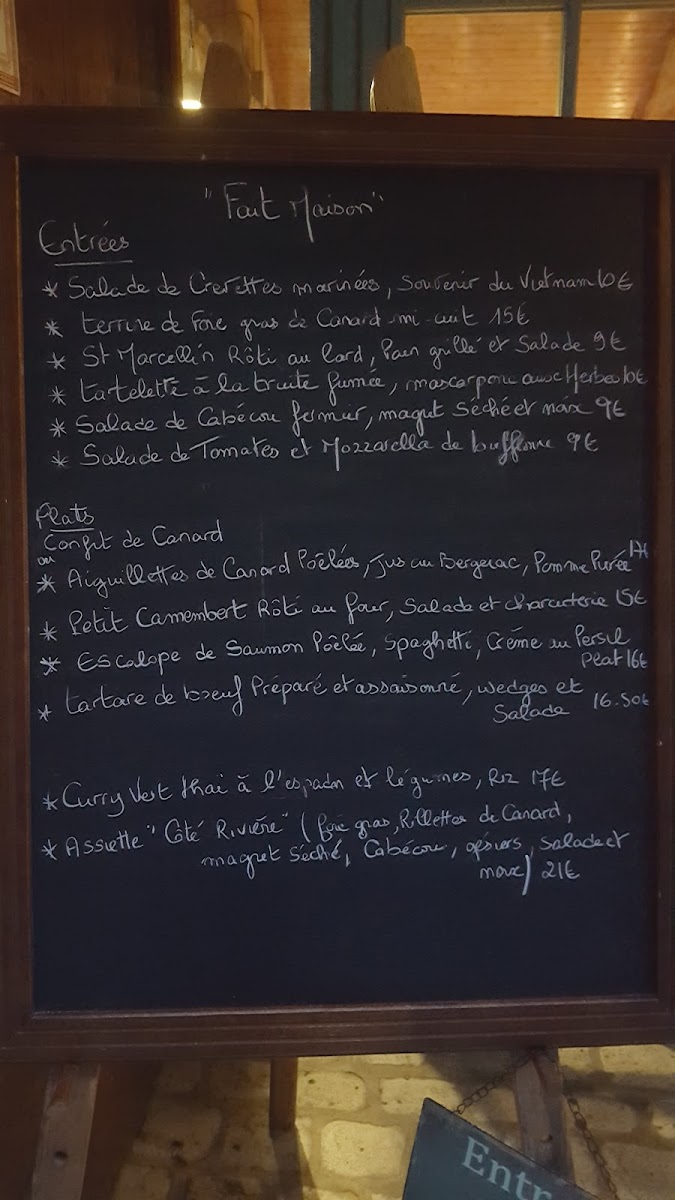 "Fait Maison"
Entrées
* Salade de Crevettes marinées, Souvenir du Vietnam 10€
* terrine de Foie gras de Canard mi-cuit 15€
* St Marcellin Rôti au lard, Pain grillé et Salade 9€
* tartelette à la truite fumée, mascarpone aux Herbes 10€
* Salade de Cabécou fermier, magret Séché et noix 9€
* Salade de Tomates et Mozzarella de bufflonne 9€
Plats
Confit de Canard
ou
* Aiguillettes de Canard Poêlées, Jus au Bergerac, Pomme Purée 17€
* Petit Camembert Rôti au four, Salade et charcuterie 15€
* Escalope de Saumon Poêlée, Spaghetti, Crème au Persil
plat 16€
* tartare de boeuf Préparé et assaisonné, wedges et
Salade 16.50€
* Curry Vert thaï à l'espadon et légumes, Riz 17€
* Assiette "Côté Rivière" (foie gras, Rillettes de Canard,
magret Séché, Cabécou, gésiers, Salade et
noix) 21€
Entr